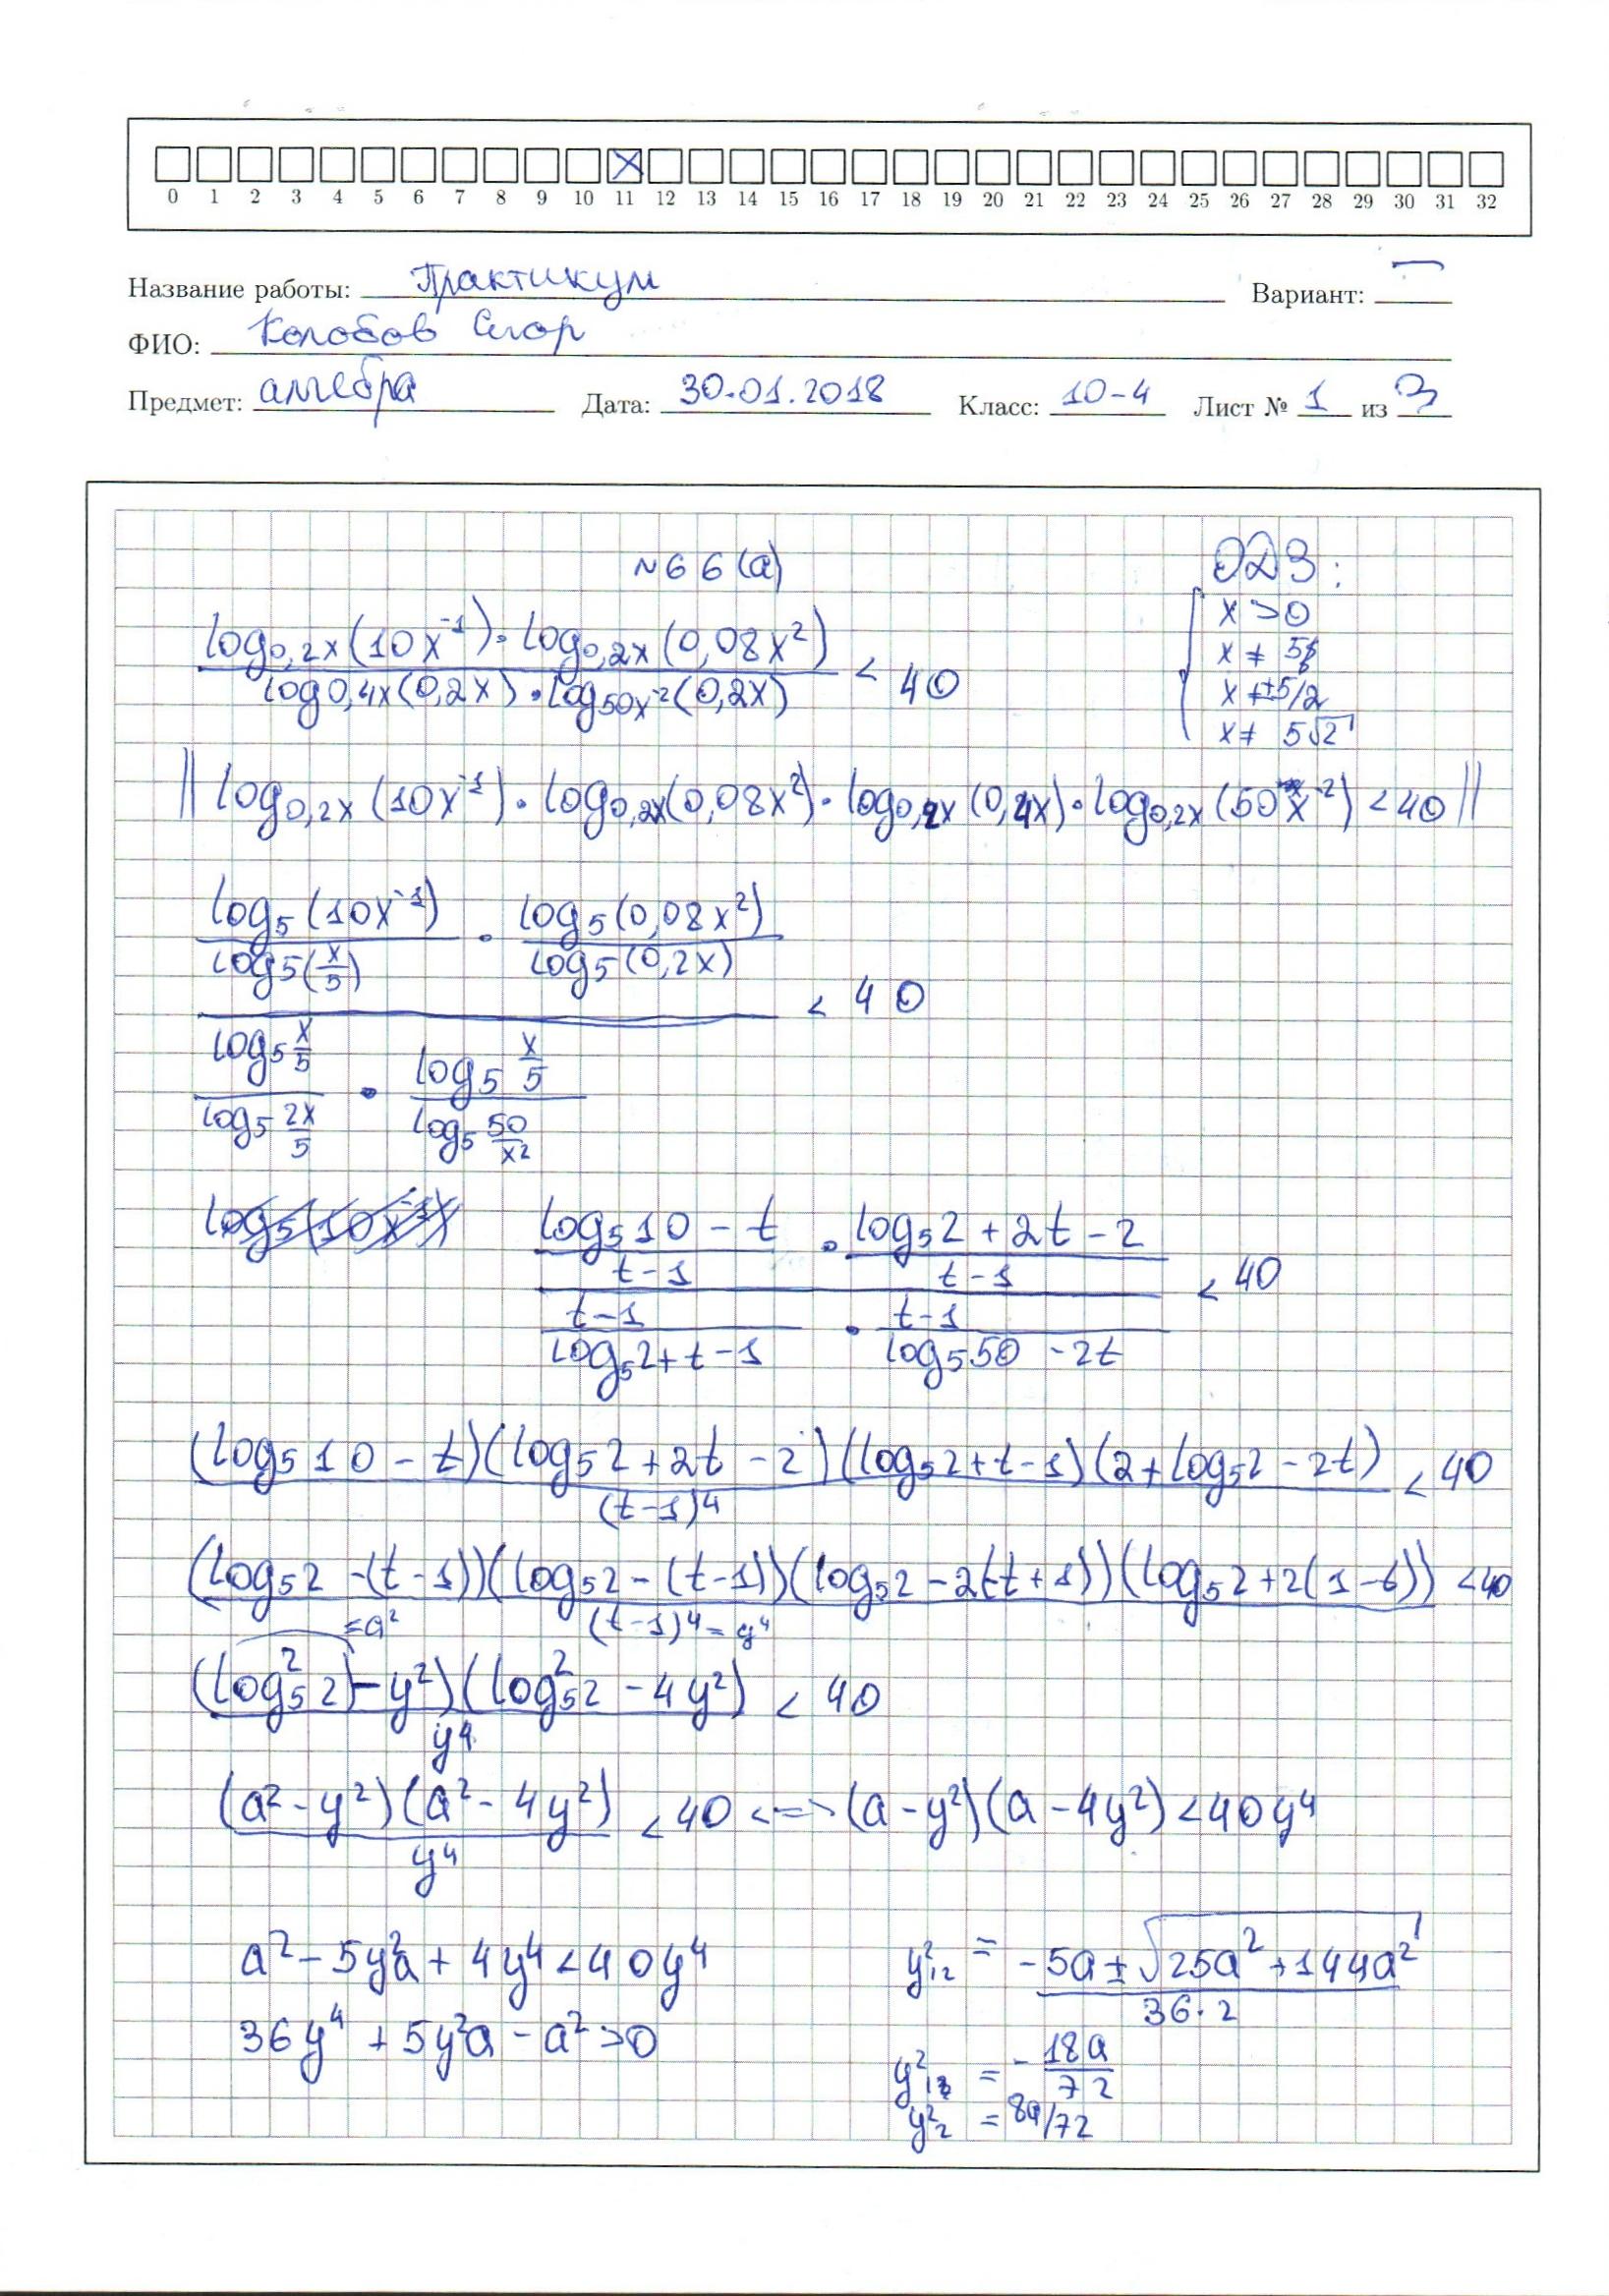 0 1 2 3 4 5 6 7 8 9 10 11 12 13 14 15 16 17 18 19 20 21 22 23 24 25 26 27 28 29 30 31 32
Название работы: Практикум Вариант: —
ФИО: Колобов Егор
Предмет: алгебра Дата: 30.01.2018 Класс: 10-4 Лист № 1 из 3
№66(а)
ОДЗ:
x > 0
x ≠ 5
x ≠ ±5/2
x ≠ 5√2
log₀,₂ₓ(10x⁻¹) · log₀,₂ₓ(0,08x²) / log₀,₄ₓ(0,2x) · log₅₀ₓ⁻²(0,2x) < 40
|| log₀,₂ₓ(10x⁻¹) · log₀,₂ₓ(0,08x²) · log₀,₂ₓ(0,4x) · log₀,₂ₓ(50x⁻²) < 40 ||
log₅(10x⁻¹) / log₅(x/5) · log₅(0,08x²) / log₅(0,2x)
< 40
log₅ x/5 / log₅ 2x/5 · log₅ x/5 / log₅ 50/x²
log₅(10x⁻¹)
log₅10 - t / t-1 · log₅2 + 2t - 2 / t-1
< 40
t-1 / log₅2 + t - 1 · t-1 / log₅50 - 2t
(log₅10 - t)(log₅2 + 2t - 2)(log₅2 + t - 1)(2 + log₅2 - 2t) / (t-1)⁴ < 40
(log₅2 - (t-1))(log₅2 - (t-1))(log₅2 - 2(t+1))(log₅2 + 2(1-t)) / (t-1)⁴ = y⁴ < 40
= a²
(log₅²2 - y²)(log₅²2 - 4y²) / y⁴ < 40
(a² - y²)(a² - 4y²) / y⁴ < 40 <=> (a - y²)(a - 4y²) < 40y⁴
a² - 5y²a + 4y⁴ < 40y⁴
36y⁴ + 5y²a - a² > 0
y²₁₂ = -5a ± √25a² + 144a² / 36·2
y²₁ = - 18a / 72
y²₂ = 8a/72